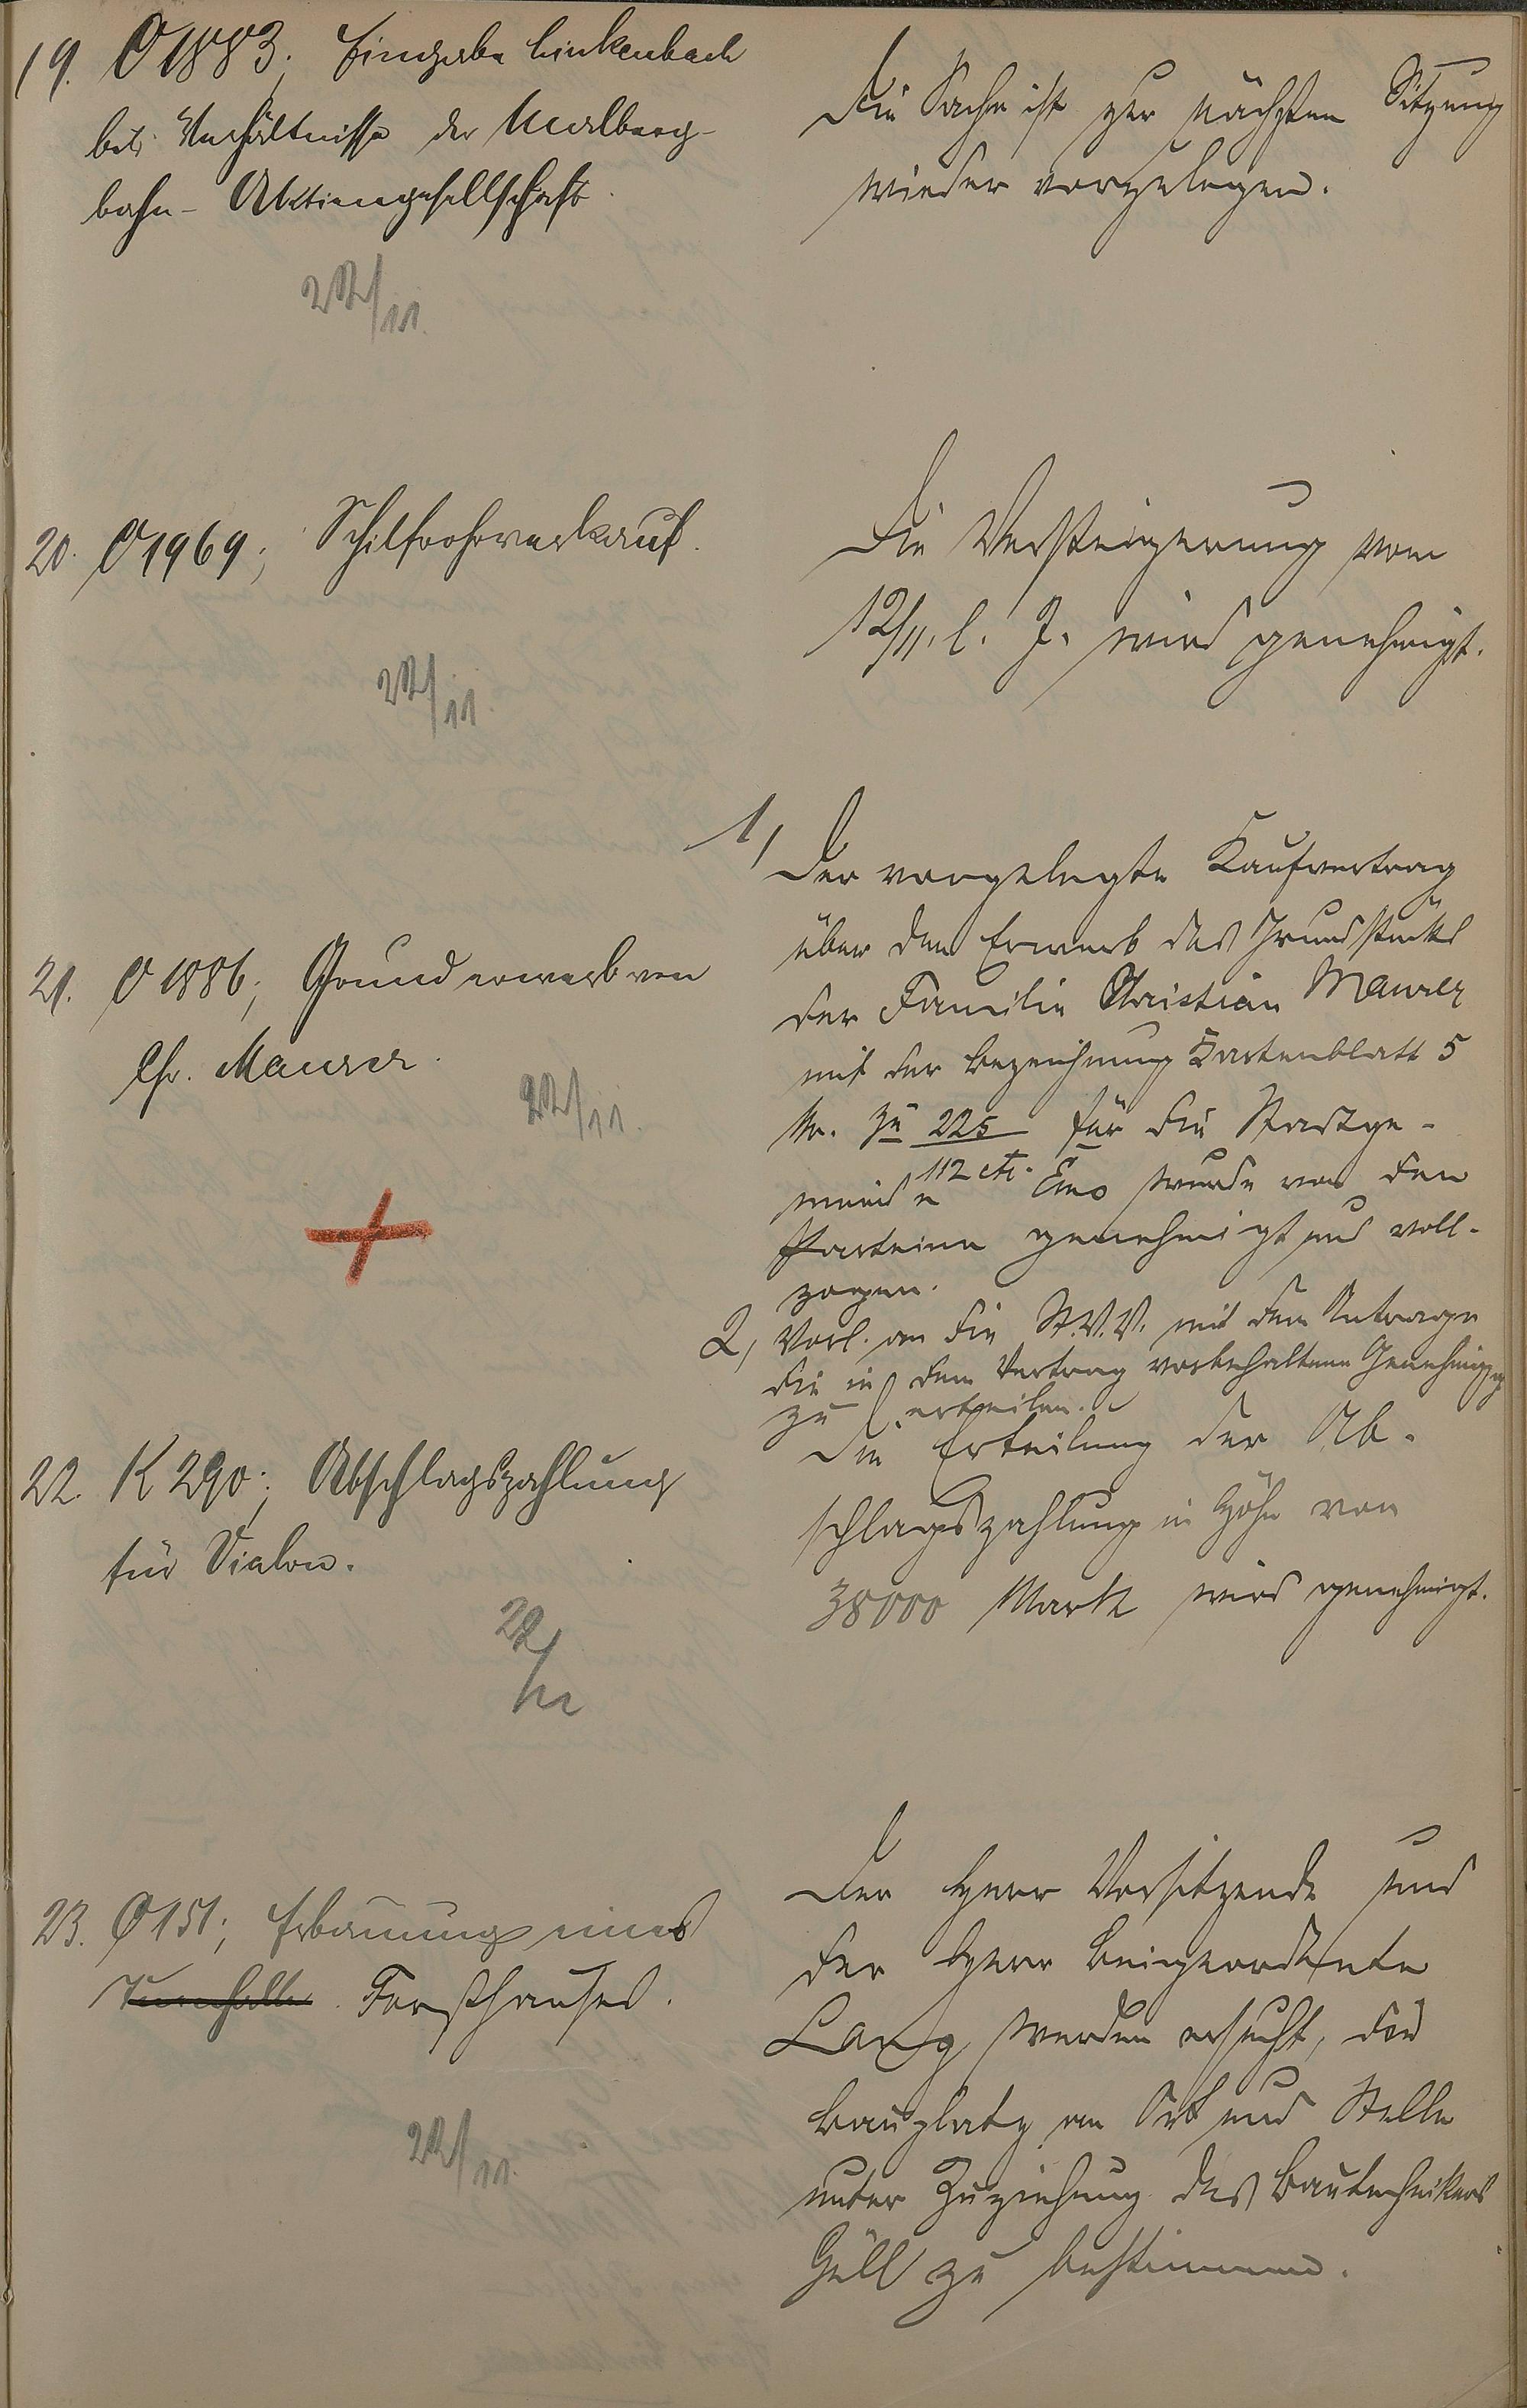 19. O 1883; Eingabe Linkenbach
betr. Verhältnisse der Malberg-
bahn-Aktiengesellschaft
22/11.
Die Sache ist zur nächsten Sitzung
wieder vorzulegen.
20. O 1969; Schilfrohrverkauf.
22/11.
Die Versteigerung vom
12/11. l. J. wird genehmigt.
21. O 1886; Grunderwerb von
Chr. Maurer.
22/11.
1, Der vorgelegte Kaufvertrag
über den Erwerb des Grundstücks
der Familie Christian Maurer
mit der Bezeichnung Kartenblatt 5
Nr. zu 225 für die Stadtge-
112 etc.
meinde Ems wurde von den
Parteien genehmigt und voll-
zogen.
2, Vorl. an die St.V.V. mit dem Antrage
die in dem Vertrag vorbehaltene Genehmigg
zu erteilen.
22. K 290; Abschlagszahlung
für Vialon.
22/11
Die Erteilung der Ab-
schlagszahlung in Höhe von
38000 Mark wird genehmigt.
23. O 151; Erbauung eines
Turnhalle Forsthauses.
22/11.
Der Herr Vorsitzende und
der Herr Beigeordnete
Lang werden ersucht, die
Bauplatz an Ort und Stelle
unter Zuziehung des Bautechnikers
Güll zu bestimmen.